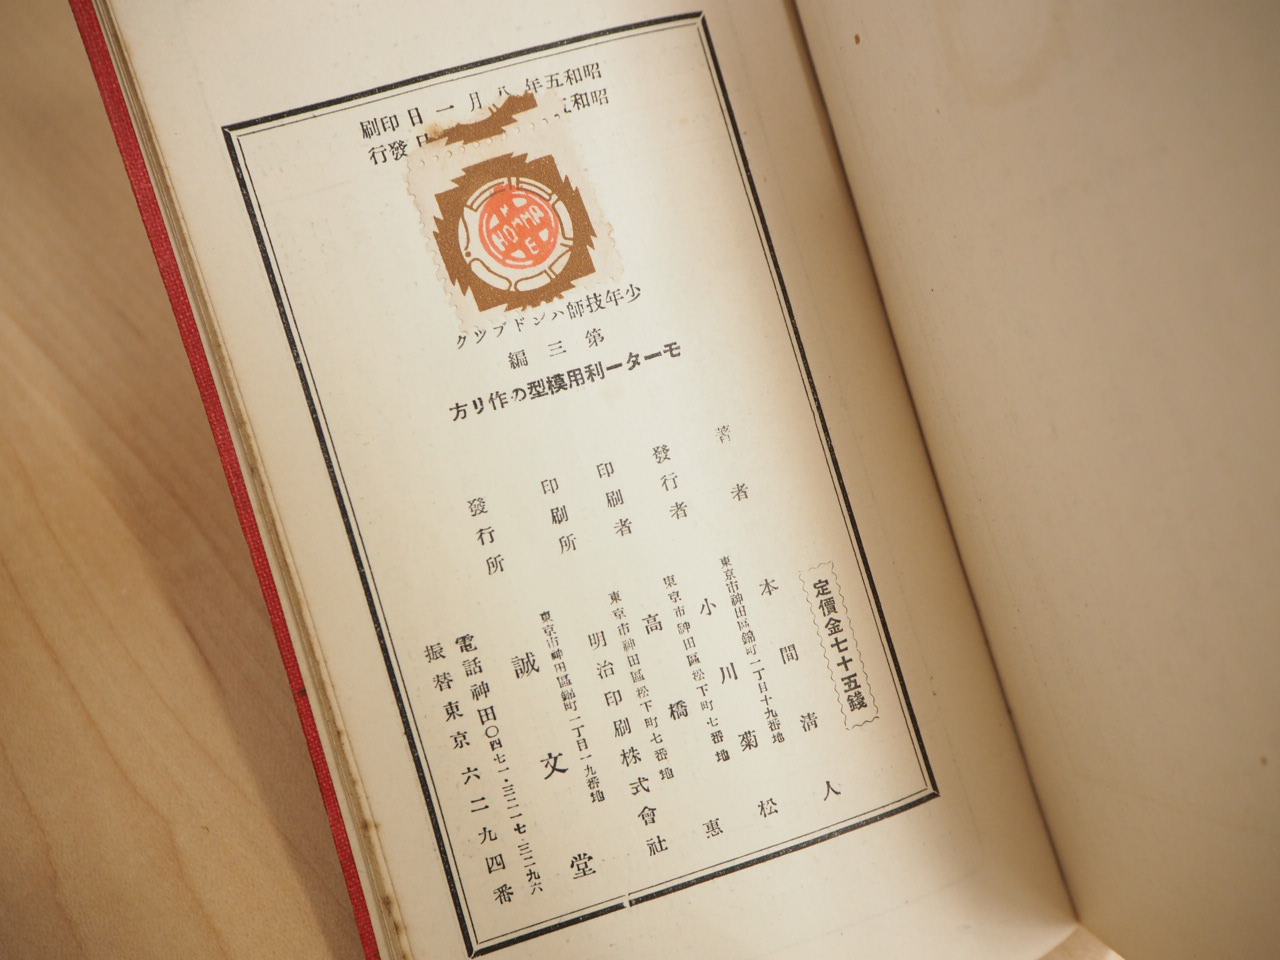 昭和五年八月一日印刷
昭和五 日發行
HOMMA
E
少年技師ハンドブツク
第三編
モーター利用模型の作り方
定價金七十五錢
著者 本間清人
東京市神田區錦町一丁目十九番地
發行者 小川菊松
東京市神田區松下町七番地
印刷者 高橋 惠
東京市神田區松下町七番地
印刷所 明治印刷株式會社
東京市神田區錦町一丁目一九番地
發行所 誠文堂
電話神田〇四七一・三二一七・三二九六
振替東京六二九四番